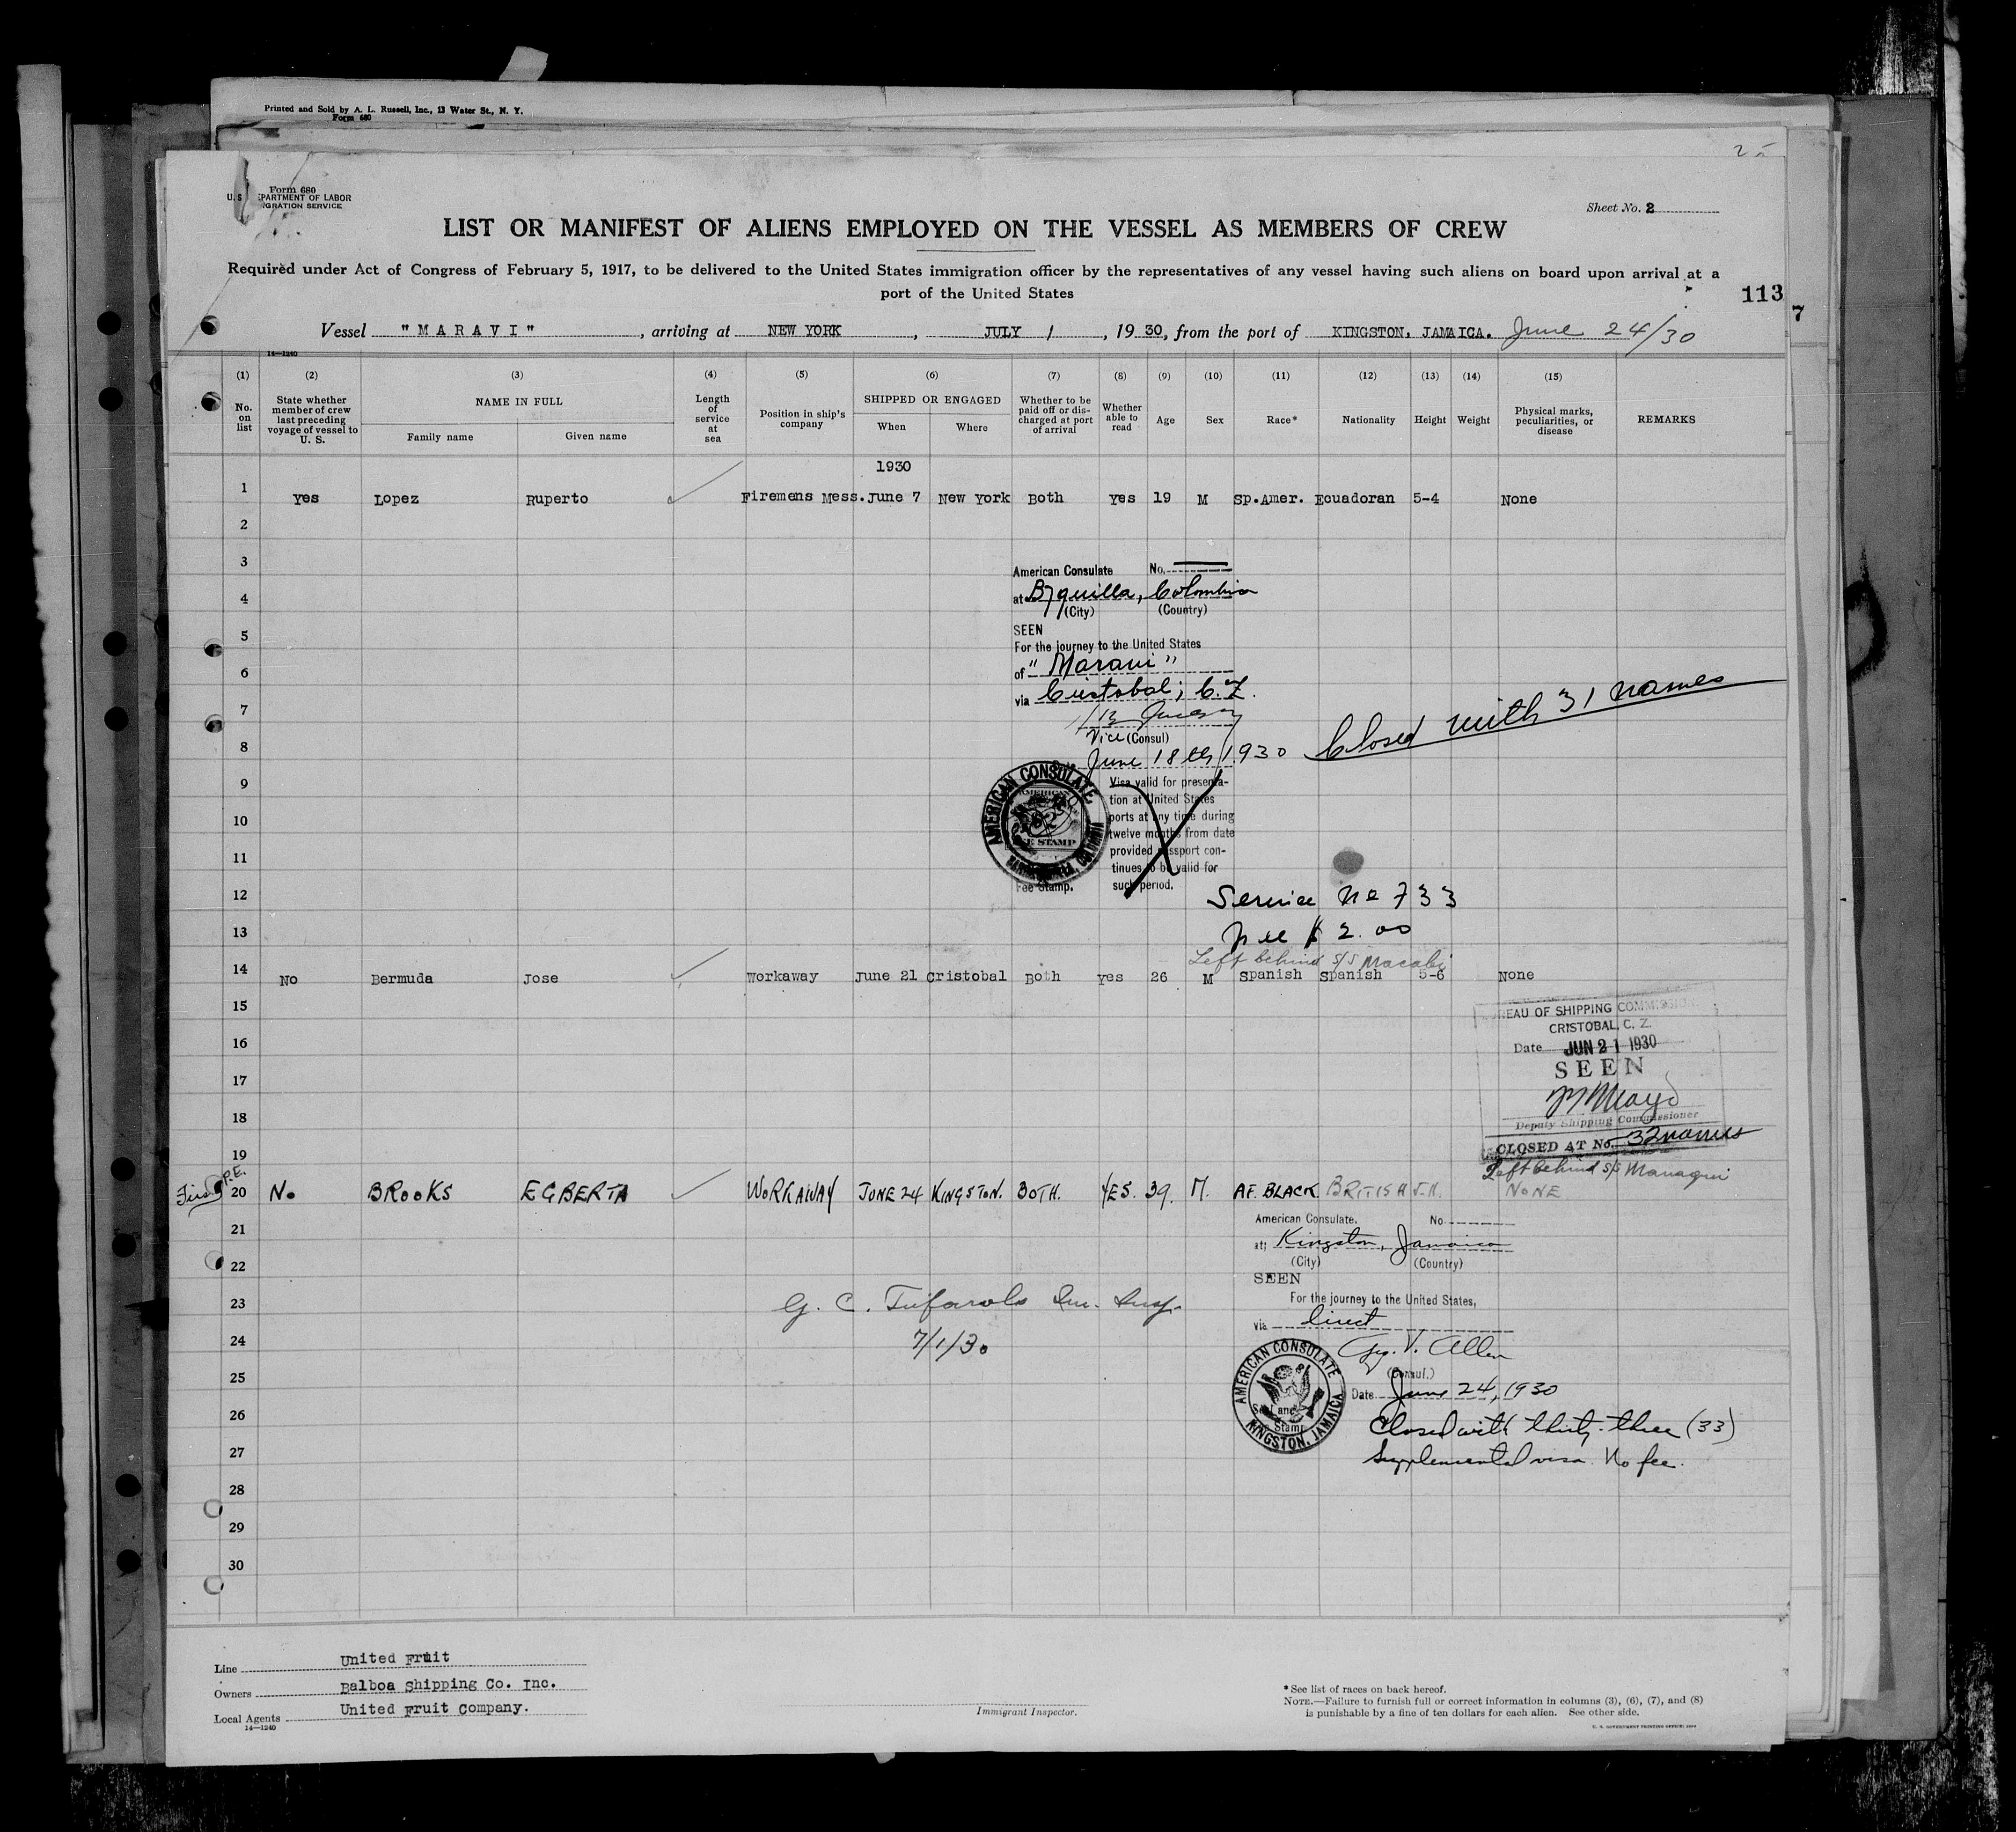 Printed and Sold by A. L. Russell, Inc., 13 Water St., N. Y.
Form 680
Form 680
U. S. DEPARTMENT OF LABOR
IMMIGRATION SERVICE
Sheet No. 2
LIST OR MANIFEST OF ALIENS EMPLOYED ON THE VESSEL AS MEMBERS OF CREW
Required under Act of Congress of February 5, 1917, to be delivered to the United States immigration officer by the representatives of any vessel having such aliens on board upon arrival at a
port of the United States
113
7
Vessel "MARAVI", arriving at NEW YORK, JULY 1, 1930, from the port of KINGSTON, JAMAICA. June 24/30
14—1240
(1) (2) (3) (4) (5) (6) (7) (8) (9) (10) (11) (12) (13) (14) (15)
No. on list
State whether member of crew last preceding voyage of vessel to U. S.
NAME IN FULL
Family name Given name
Length of service at sea
Position in ship's company
SHIPPED OR ENGAGED
When Where
Whether to be paid off or discharged at port of arrival
Whether able to read
Age
Sex
Race*
Nationality
Height
Weight
Physical marks, peculiarities, or disease
REMARKS
1930
1 Yes Lopez Ruperto Firemens Mess. June 7 New York Both Yes 19 M Sp.Amer. Ecuadoran 5-4 None
2
3
American Consulate No.
4
at B/quilla, Colombia
(City) (Country)
5
SEEN
For the journey to the United States
6
of "Maravi"
via Cristobal, C.Z.
7
Closed with 31 names
Vice (Consul)
8
June 18th, 1930
9
AMERICAN CONSULATE, BARRANQUILLA, COLOMBIA
Visa valid for presenta-
tion at United States
10
ports at any time during
twelve months from date
11
provided passport con-
tinues to be valid for
such period.
Fee Stamp.
12
Service No 733
13
Fee $ 2.00
Left behind s/s Macabi
14 No Bermuda Jose Workaway June 21 Cristobal Both Yes 26 M Spanish Spanish 5-6 None
15
BUREAU OF SHIPPING COMMISSIONER
CRISTOBAL, C. Z.
16
Date JUN 21 1930
SEEN
17
18
Deputy Shipping Commissioner
CLOSED AT No. 32 names
19
Left behind s/s Managui
First P.E. 20 No BROOKS EGBERTA WORKAWAY JUNE 24 KINGSTON. BOTH. YES. 39. M. AF. BLACK BRITISH J.A. NONE
21
American Consulate. No
at Kingston, Jamaica
22
(City) (Country)
SEEN
23
For the journey to the United States,
G. C. Tufarolo Im. Insp.
via direct
24
7/1/30
Geo. V. Allen
25
(Consul.)
AMERICAN CONSULATE KINGSTON, JAMAICA
Date June 24, 1930
26
Closed with thirty-three (33)
27
Supplemental visa. No fee.
28
29
30
Line United Fruit
Owners Balboa Shipping Co. Inc.
Local Agents United Fruit Company.
14—1240
Immigrant Inspector.
* See list of races on back hereof.
NOTE.—Failure to furnish full or correct information in columns (3), (6), (7), and (8)
is punishable by a fine of ten dollars for each alien. See other side.